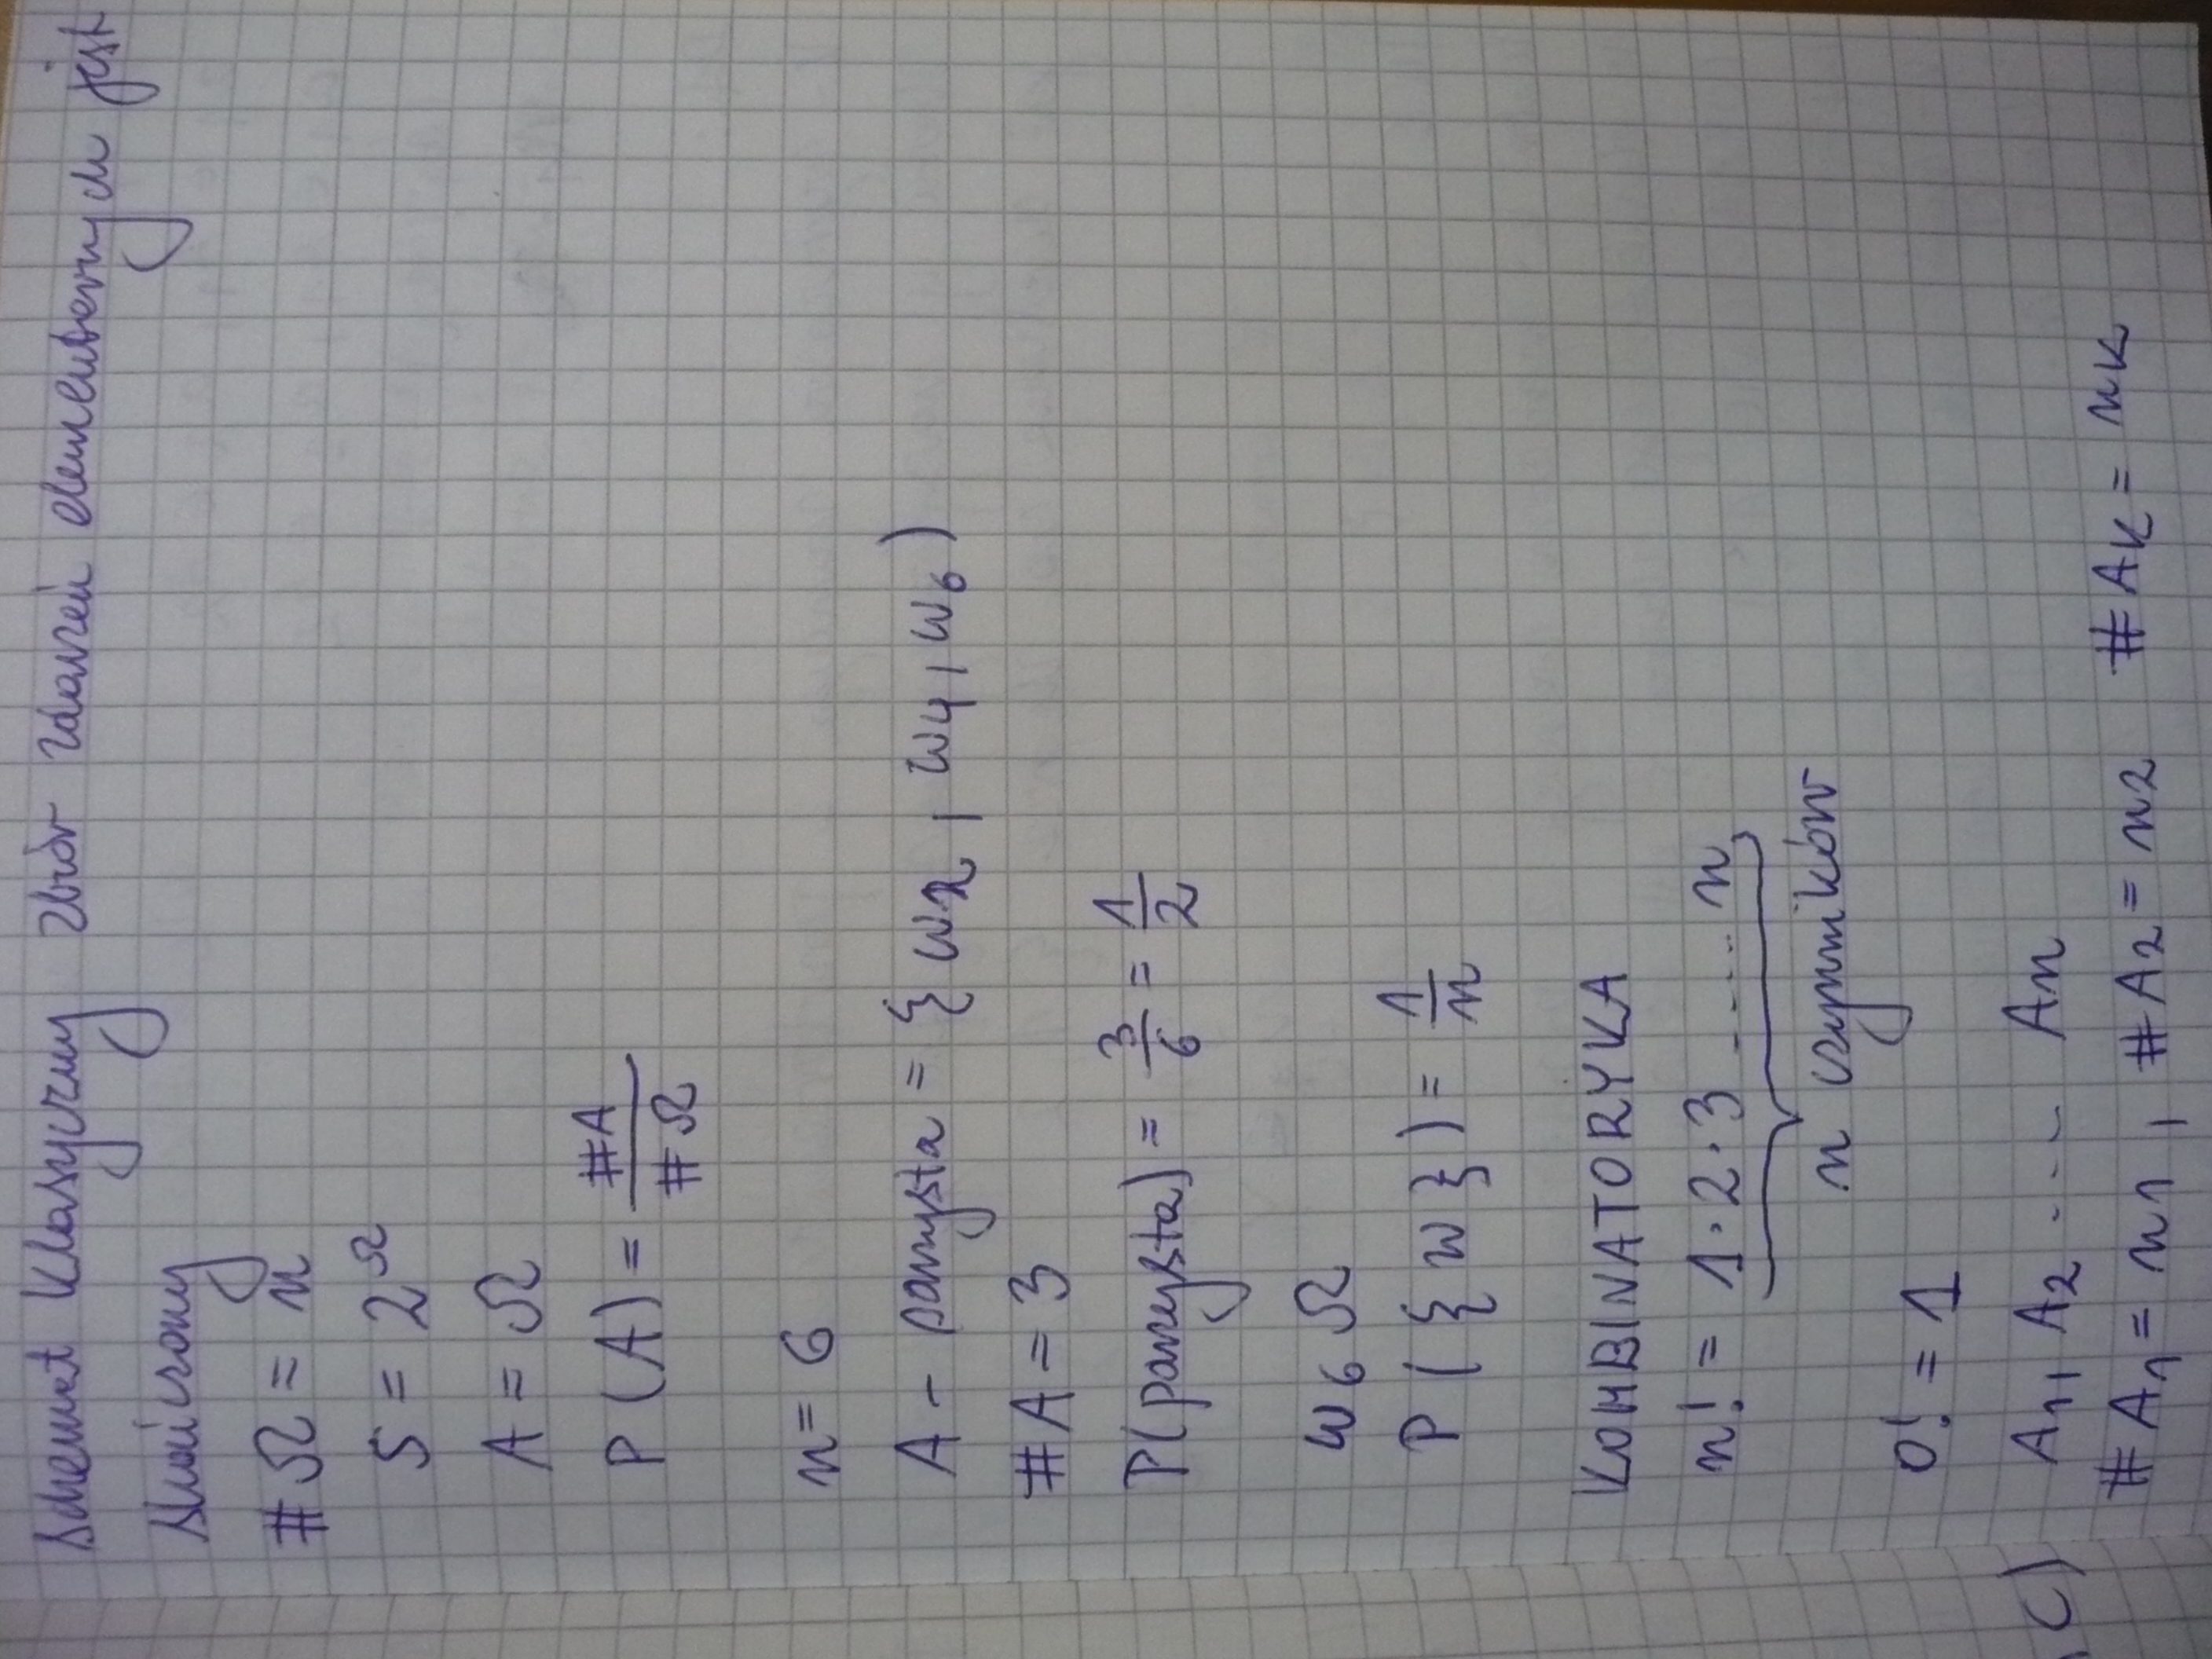 Schemat klasyczny zbiór zdarzeń elementarnych jest
skończony
# Ω = n
S = 2^Ω
A = Ω
P (A) = #A / #Ω
n = 6
A - parzysta = { ω2 , ω4 , ω6 )
# A = 3
P(parzysta) = 3/6 = 1/2
ω 6 Ω
P ( { ω } ) = 1/n
KOMBINATORYKA
n! = 1 · 2 · 3 ..... n
n czynników
0! = 1
A1, A2 .... An
# A1 = n1 , # A2 = n2 # Ak = nk
C)